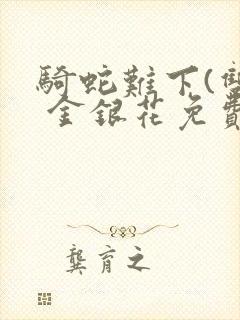 騎蛇難下(雙
金銀花免費
龔育之